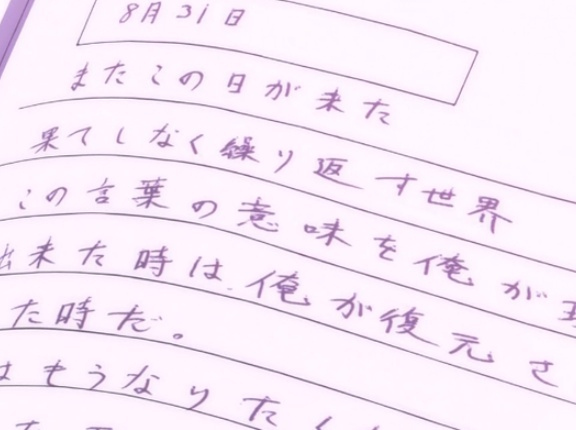 8月31日
またこの日が来た
果てしなく繰り返す世界
この言葉の意味を俺が
来た時は、俺が復元さ
た時だ。
はもうなりたく